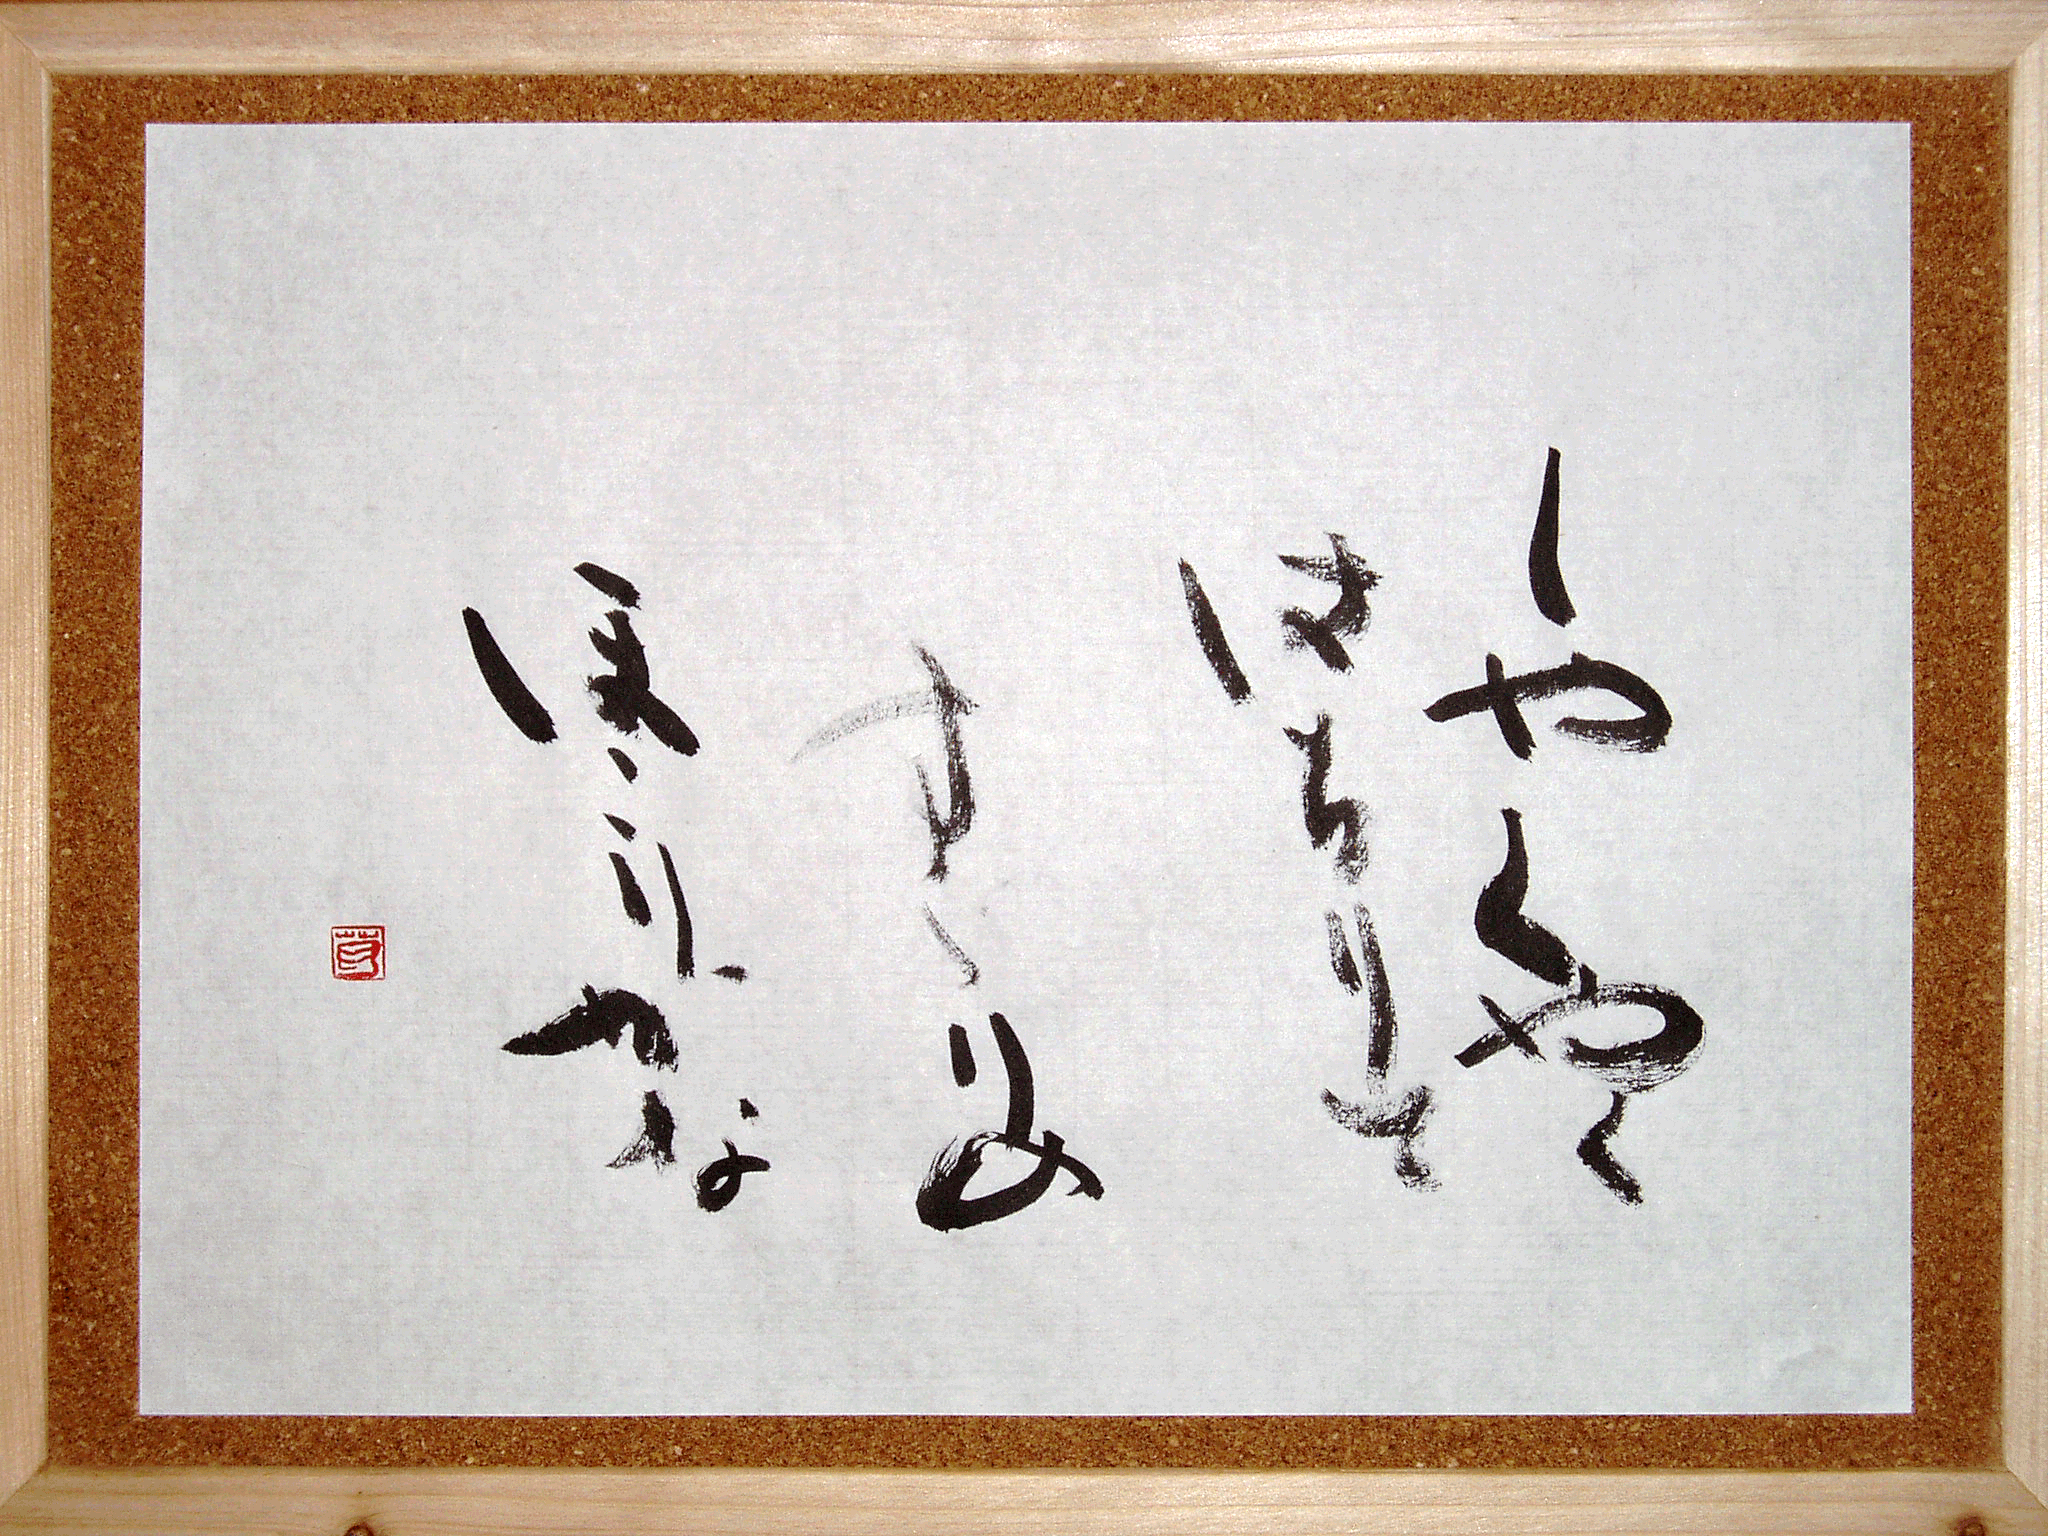 しやくやく
はちりて
すゝりの
ほこりかな